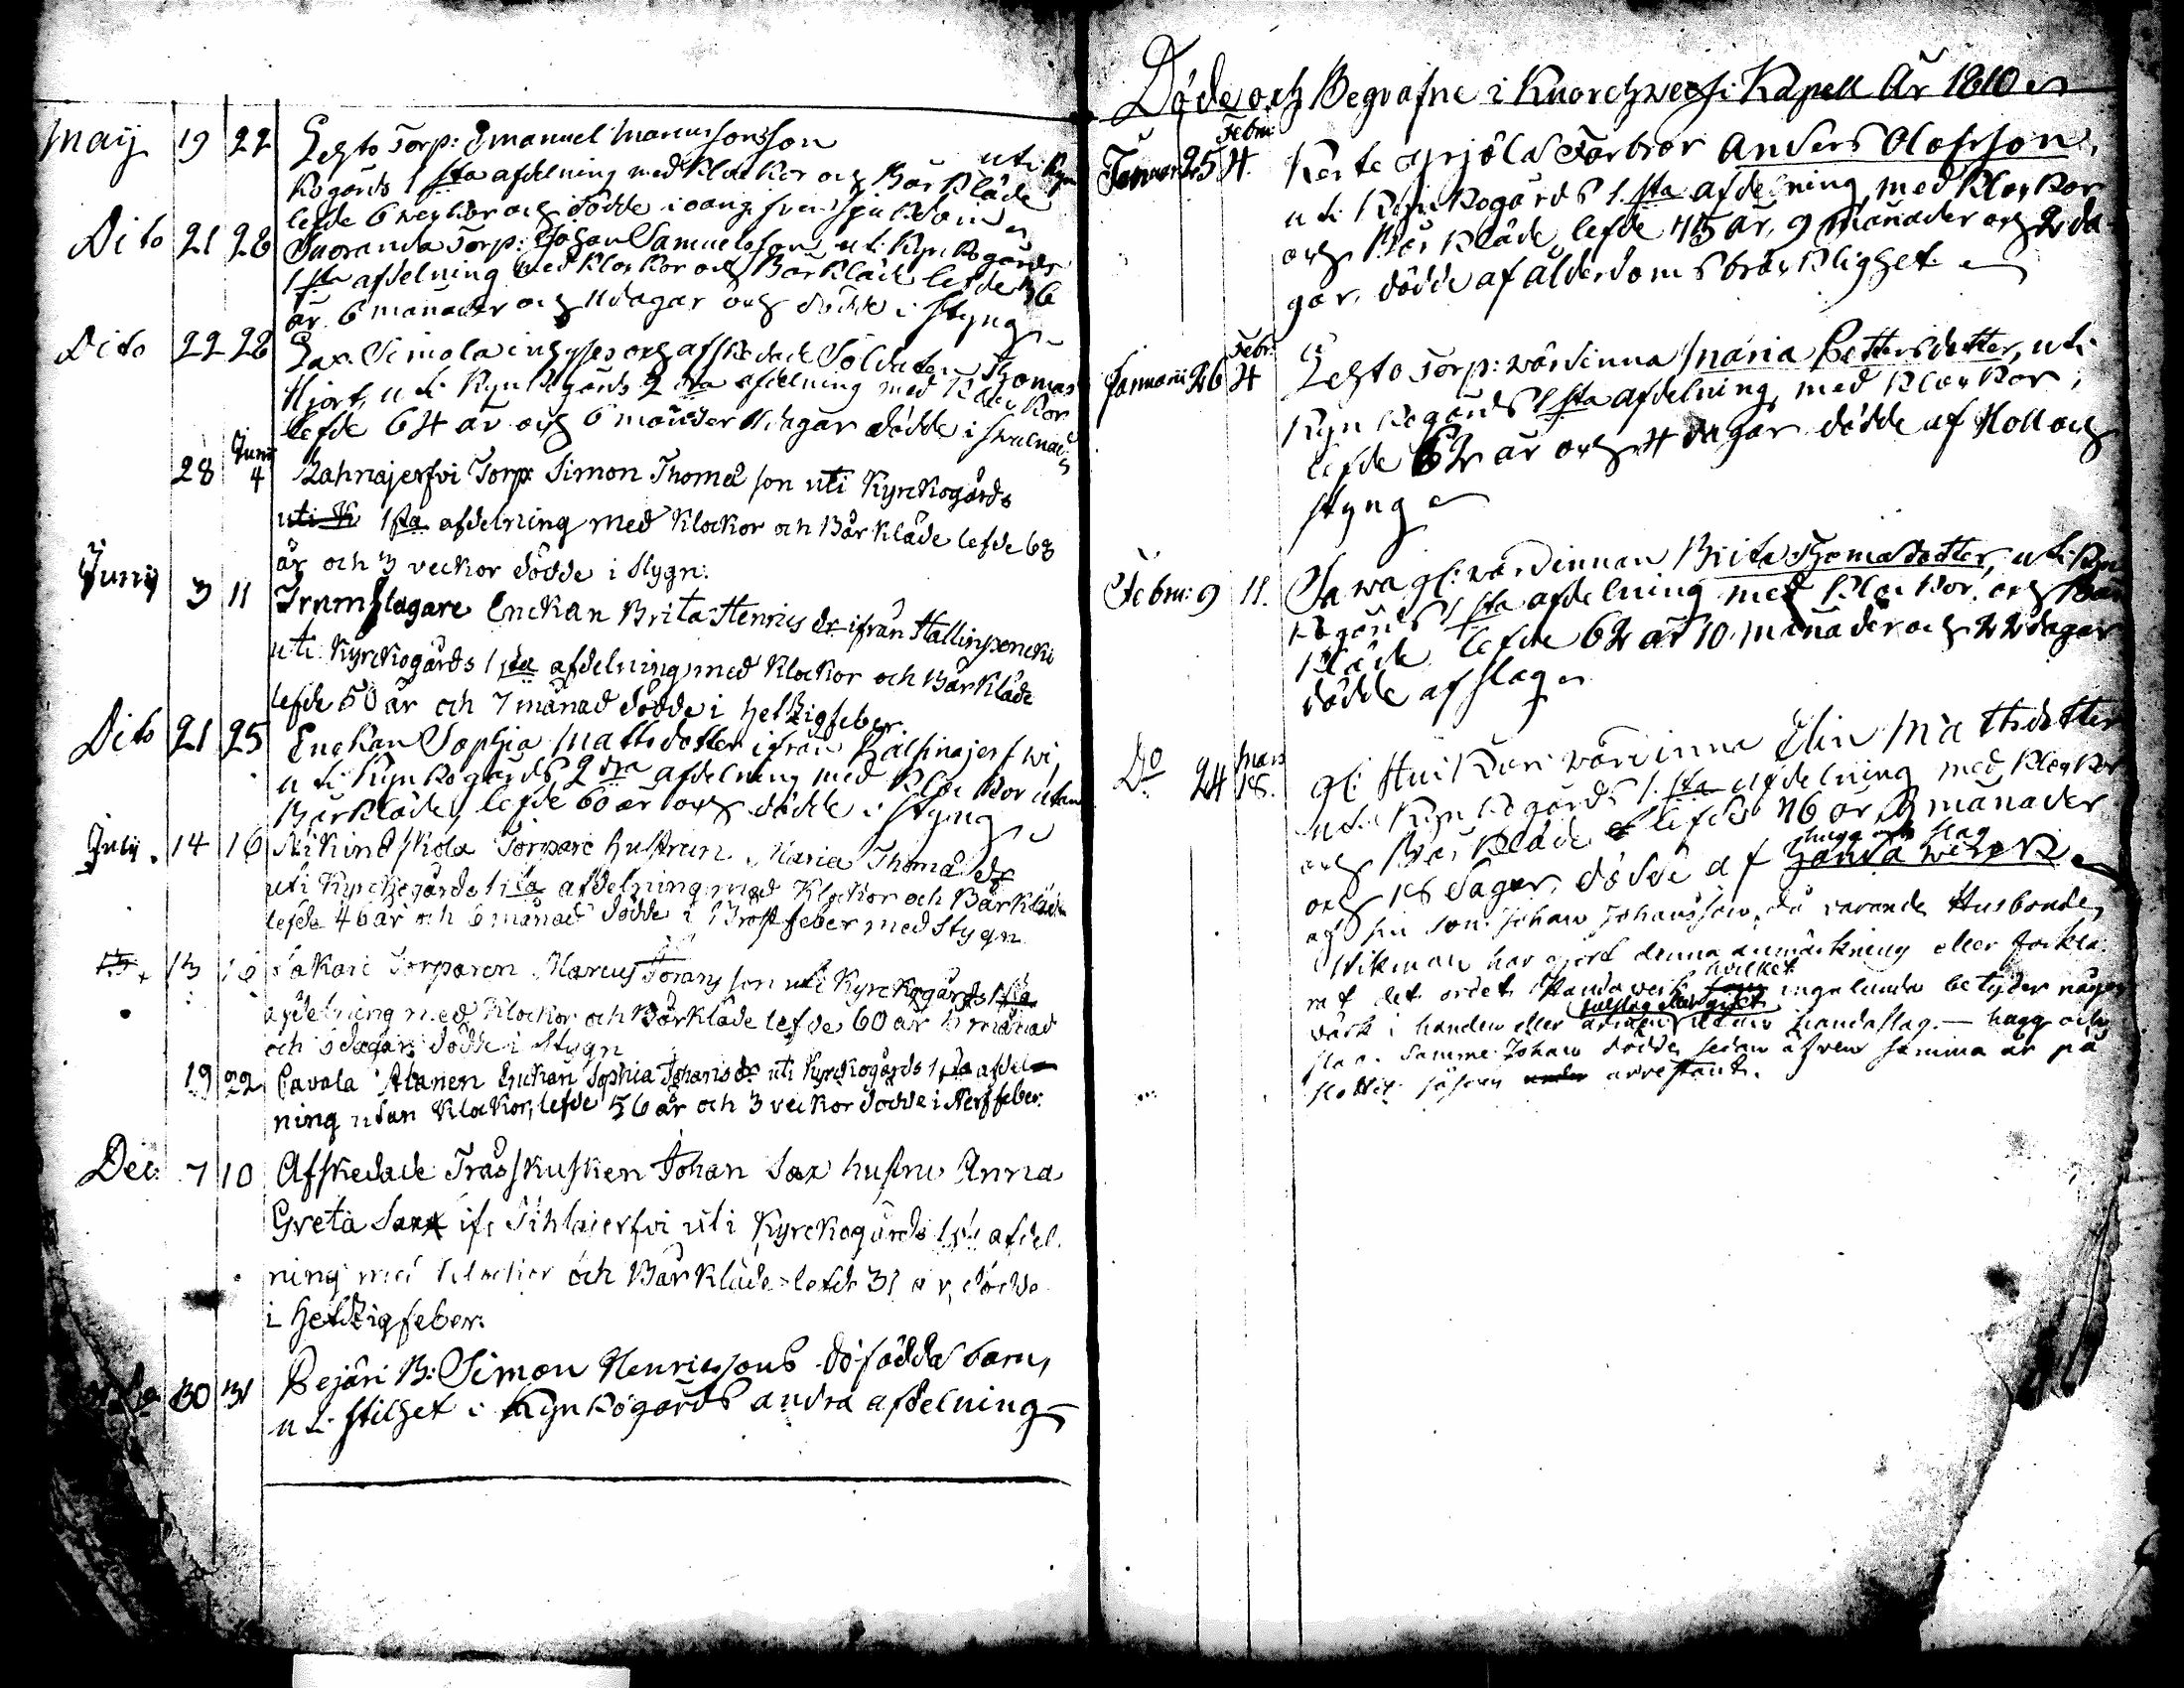 May 19 22 Lehto Torp: Emanuel Marcussons Son uti Kyrc
kogårds 1 sta afdelning med Klockor och Bårkläde
lefde 6 weckor och dödde i oang: frens Sjukdom
Dito 21 28 Suoranda Torp: Johan Samuelsson uti Kyrckogårds
1 sta afdelning med Klockor och Bårkläde lefde 36
år 6 månader och 11 dagar och dödde i styng
Dito 22 28 Lax: Simola inhyses och afskedade Soldaten Thomas
Hjort, uti Kyrckogårds 2 dra afdelning med Klockor
lefde 64 år och 6 månder 11 dagar dödde i swulnad
28 Junii 4 Lahnajerfvi Torp: Simon Thomæ son uti Kyrckogårds
uti K 1 sta afdelning med Klockor och Bårkläde lefde 68
år och 3 veckor dödde i Stygn:
Junij 3 11 Trumslagare Enckan Brita Henrics dr ifrån Hallinpencki
uti Kyrckogårds 1 sta afdelning med Klockor och Bårkläde
lefde 50 år och 7 månad dödde i Hetzigfeber
Dito 21 25 Enckan Sophia Mattsdotter ifrån Kälsinajerfwi,
uti Kyrckogårds 2 dra afdelning med Klockor utan
Bårkläde, lefde 60 år och dödde i styng
July 14 16 Nikindskola Torpare hustrun Maria Thomæ dr
uti Kyrckogårds 1 sta afdelning med Klockor och Bårkläde
lefde 46 år och 6 månad dödde i Bröstfeber med Stygn
13 16 Sakari Torparen Marcus Görans son uti Kyrckogårds 1 sta
afdelning med Klockor och Bårkläde lefde 60 år månad
och dagar dödde i Stygn
19 22 Cavala Alanen Enckan Sophia Johans dr uti Kyrckogårds 1 sta afdel
ning utan Klockor, lefde 56 år och 3 veckor dödde i Nerffeber.
Dec: 7 10 Afskedade Trässkusken Johan Sax hustru Anna
Greta Sax ifr Sihlajerfvi uti Kyrckogårds 1 sta afdel.
ning med Klockor och Bårkläde lefde 31 år, dödde
i Hetzigfeber.
30 31 Pejari B: Simon Henricssons dödfödda barn,
uti stilhet i Kyrckogårds andra afdelning
Döde och Begrafne i Kuorehwesi Kapell År 1810
Januari 25 Febru: 4. Kerte Yrjölä Farbror Anders Olofsson,
uti Kyrckogårds 1. sta afdelning med Klockor
och Bårkläde, lefde 75 år, 9 månader och 2 da
gar, dödde af ålderdoms bräcklighet
Januarii 26 Febr: 4 Lehto Torp: wärdinna Maria Pettersdotter, uti
Kyrckogårds 1 sta afdelning, med Klockor,
lefde 62 år och 4 dagar dödde af Håll och
styng
Febru: 9 11. Sawa gl: wärdinnan Brita Thomasdotter, uti Kyrc
kogårds 1 sta afdelning med Klockor, och Bår
kläde lefde 62 år 10. månader och 22 dagar
dödde af slag
Do 24 Mars 18. gl: Huikari wärdinna Elin Mattsdotter
uti Kyrckogårds 1. sta afdelning med Klockor
och Bårkläde lefde 76 år, 3 månader
hugg och slag
och 18 dagar, dödde af handa werck
af sin son Johan Johansson, då varande Husbonde,
Wikman har gjort denna anmärkning eller förkla
hvilket
rat det ordet Handawerk ingalunda betyder någon
fullslag eller gikt
värk i handen eller armen utan handaslag. — hugg och
slag. Samme Johan dödde sedan äfven samma år på
slottet såsom under arrestant.